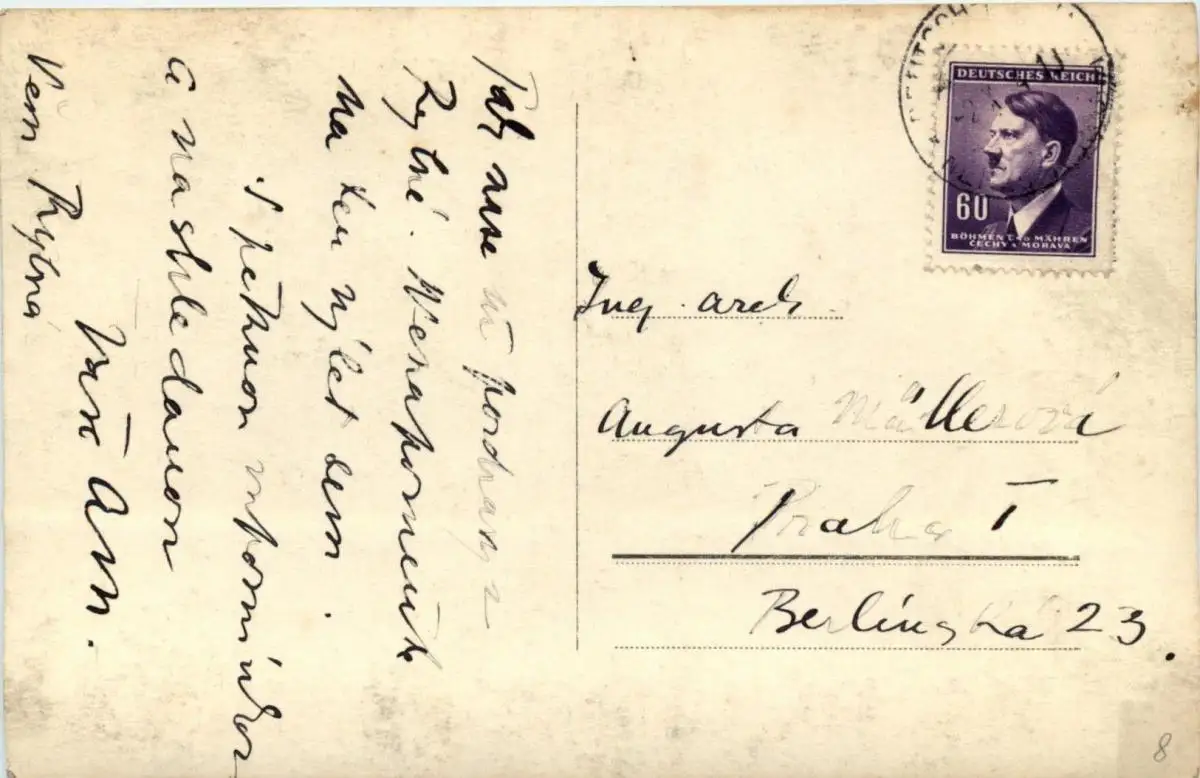 Tak nac ní pozdravy z
Rytné. Nezapomeňte
na ten výlet sem.
S pěknou vzpomínkou
a na shledanou
Vaše Ann.
Věra Rytná
DEUTSCHES REICH
60
BÖHMEN UND MÄHREN
ČECHY A MORAVA
Ing. arch.
Augusta Müllerová
Praha I
Berlínská 23.
8